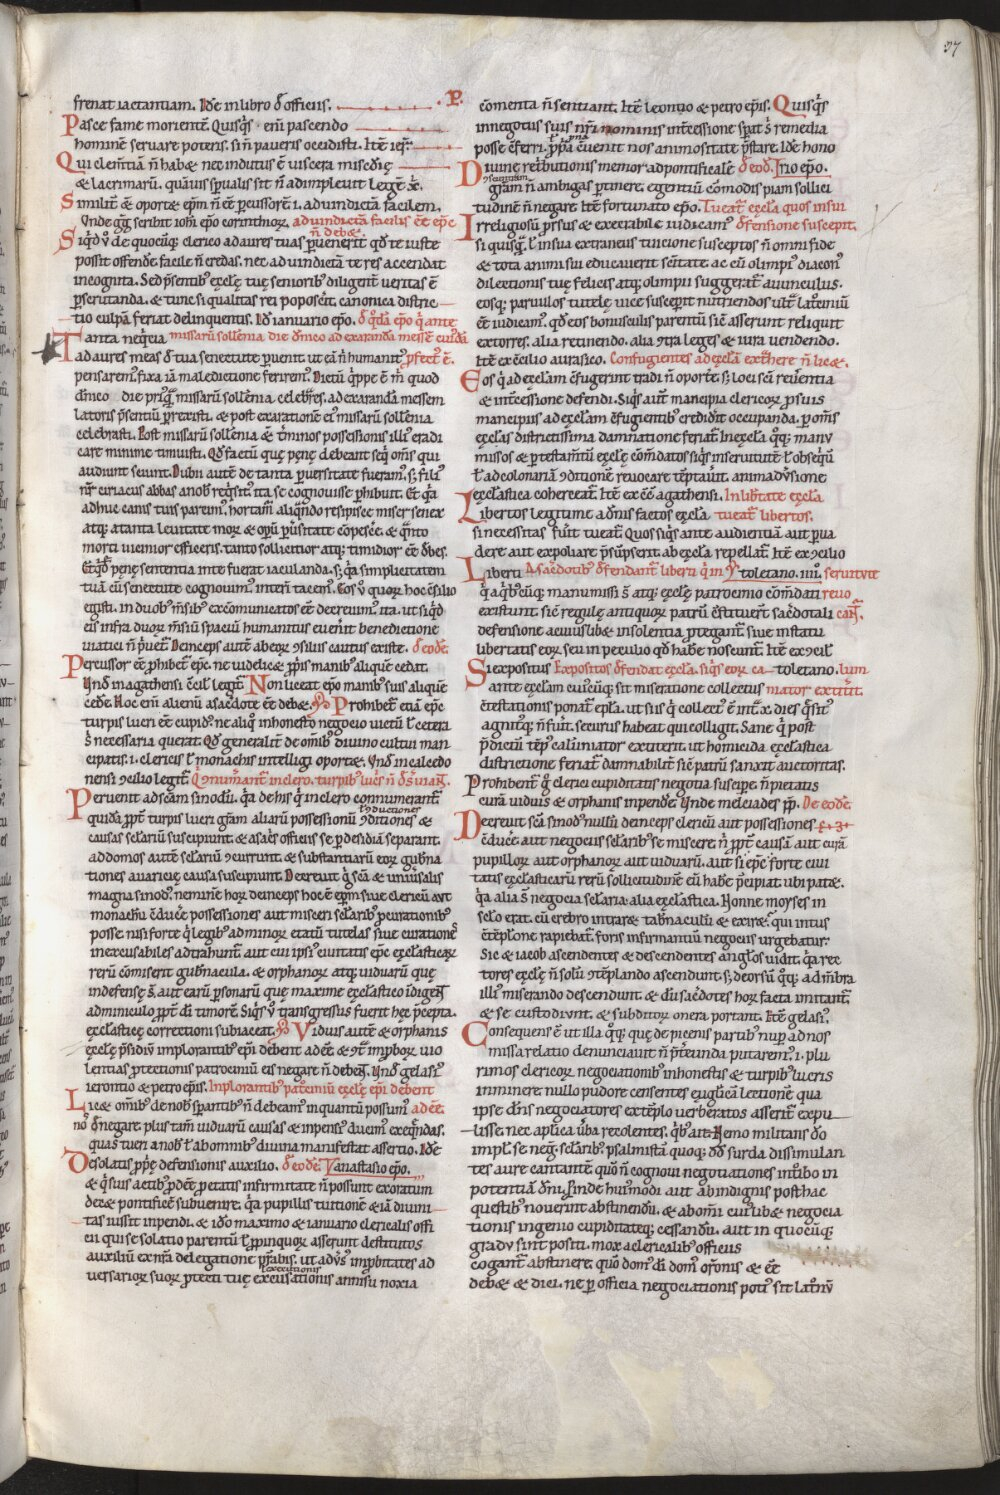 37
frenat iactantiam. Ide in libro d̄ officiis.
.P.
Pasce fame morientē. Quisq̇s eni pascendo
hominē servare poteris. si n̄ paveris occidisti. Itē ier̄.
Qui clem̄tiā n̄ habet nec indutus ē viscera miscdię
& lacrimarū. quāuis sp̄ualis sit n̄ adimplevit legē x̄.
Similit̄ & oportet ep̄m n̄ cē p̄cussorē .i. ad vindictā facilem.
Vnde gḡ scribit ioh̄i ep̄o corinthior̄. ad vindictā facilis cē ep̄c
n̄ debet.
Siq̇d v̄ de quocūq; clerico ad aures tuas p̄venerit qd̄ te iuste
possit offend̄e facile n̄ credas. nec ad vindictā te res accendat
incognita. Sed p̄sentib; eccl̄ę tuę seniorib; diligent̄ veritas ē
p̄scrutanda. & tunc si qualitas rei poposcit. canonica distric
tio culpā feriat delinquentis. Id̄ ianuario ep̄o. d̄ q̇dā ep̄o q̇ ante
Tanta neq̇tia missarū soll̄enia die d̄nico ad exarandā messē cui̇dā
ad aures meas d̄ tua senectute p̄venit. ut eā n̄ humanit̄ p̄fect̄ ē.
pensarem; fixa iā maledictione ferirem. Dictū q̇ppe ē m̄ quod
d̄nico die priq̄ missarū soll̄enia celebr̄es. ad exarandā messem
latoris p̄sentiū p̄rexisti. & post exarationē ei; missarū soll̄enia
celebrasti. Post missarū soll̄enia & t̄minos possessionis illi; eradi
care minime timuisti. Qd̄ factū quę pęne debeant seq̇ om̄s qui
audiunt sciunt. Dubii autē de tanta p̄versitate fueram; s; fili;
nr̄ ciriacus abbas a nob̄ req̇sit; ita se cognovisse p̄hibuit. Et q̇a
adhuc canis tuis parcim; hortam̄ aliq̇ndo resipisce miser senex
atq; a tanta levitate mor̄ & op̄ū p̄versitate cōpesce. & q̇nto
morti vicinior efficeris. tanto sollicitior atq; timidior cē d̄bes.
Et q̇d̄ pęnę sententia in te fuerat iaculanda. s; q̇a simplicitatem
tuā cū senectute cognovim; interī tacem; Eos v̄ quor̄ hoc c̄silio
egisti. in duob; m̄sib; excōmunicatos cē decrevim; ita. ut si q̇d
eis infra duor̄ m̄siū spaciū humanitus evenit benedictione
viatici n̄ p̄vent̄. Deinceps autē ab eor̄ ꝯsiliis cautus existe. d̄ eodē.
Percussor cē p̄hibet̄ ep̄c. ne videlicet p̄priis manib; aliquē cedat.
Vnd̄ in agathensi c̄cil̄ legit̄. Non liceat ep̄o manib; suis aliquē
cedē. Hoc eni alienū a sac̄dote cē debet. Prohibet̄ etiā ep̄c
turpis lucri cē cupid; ne aliq̇ inhonesto negocio victū l̄ cetera
s̄ necessaria querat. Qd̄ generalit̄ de om̄ib; divino cultui man
cipatis. i. clericis l̄ monachis intelligi oportet. Vnd̄ in calcedo
nensi ꝯcilio legit̄. Q̇ ꝯnumerant̄ in clero. turpib; luc̄s n̄ d̄s̄ inhi͞a͞.
Pervenit ad s̄cam sinodū. q̇a de his q̇ in clero connumerant̄
quidā. p̄pt̄ turpis lucri gr̄am aliarū possessionū ꝯditiones &
l̄ ꝯductiones
causas sel̄ariū suscipiunt. & a sac̄s officiis se p̄ desidiā separant.
ad domos autē sel̄ariū ꝯcurrunt. & substantiarū eor̄ gub̄na
tiones avaricię causa suscipiunt. Decrevit q̇ s̄cā & univsalis
magna sinod; neminē hor̄ deinceps hoc ē ep̄m sive clericū aut
monachū c̄ducē possessiones aut misceri sel̄arib; p̄curationib;
posse. nisi forte q̇ legib; ad minor̄ etatū tutelas sive curationē
inexcusabiles adtrahunt̄. aut cui ipsi; civitatis ep̄c eccl̄asticar̄
rerū cōmiserit gub̄nacula. & orphanor̄ atq; viduarū quę
indefensę s̄. aut earū p̄sonarū quę maxime eccl̄astico idigent
adminiculo p̄pt̄ dī timorē. Siq̇s v̄ transgressus fuerit hęc p̄cepta.
eccl̄asticę correctioni subiaceat. Viduis autē & orphanis
eccl̄ę p̄sidiū implorantib; ep̄i debent adēē & ꝯt̄ improbor̄ vio
lentias p̄tectionis patrociniū eis negare n̄ debent. Vnd̄ gelasi;
ierontio & petro ep̄is. Inplorantib; pat̄ciniū eccl̄ę ep̄i debent
Licet om̄ib; de nob̄ sp̄antib; n̄ debeam; in quantū possum; adēē.
n̄o d̄negare. plus tam̄ viduarū causas & inpensi; ducim; exeq̇ndas.
quas tueri a nob̄ l̄ ab om̄ib; divina manifestat assertio. Id̄e
Desolatis p̄pę defensionis auxilio. d̄ eodē. Vanastasio ep̄o.
& q̇ suis actib; p̄dēē p̄ etatis infirmitatē n̄ possunt exoratum
decet pontificē subvenire. q̇a pupillis tuitionē & iā divini
tas iussit inpendi. & id̄o maximo & ianuario clericalis offi
cii qui se solatio parentū l̄ p̄pinquor̄ asserunt destitutos
auxiliū ext̄na delegatione p̄stabis. ut adv̄s; improbitates ad
versarior̄ suor̄ p̄tecti tuę excusationis annisu noxia
cōmenta n̄ sentiant. Itē leontio & petro ep̄is. Quisq̇s
in negotiis suis nr̄i nominis int̄cessione sp̄at s̄ remedia
posse c̄ferri. p̄p̄a c̄venit nos animositate p̄stare. Id̄e hono
Divine ret̄butionis memor ad pontificale d̄ eod̄. Irio ep̄o.
gr̄am n̄ ambigas p̄tinere. egentiū cōmodis piam sollici
tudinē n̄ negare. Itē fortunato ep̄o. Tueat̄ eccl̄a quos in sui
Irreligiosū p̄rsus & execrabile iudicam; d̄fensione suscepit.
si quisq̄ l̄ in sua extraneus tuicione susceptos n̄ om̄i fide
& tota animi sui educaverit sc̄itate. ac cū olimpi; diacon;
dilectionis tuę felicis atq; olimpii suggerat̄ avunculus.
eosq; parvulos tutelę vice susceperit nutriendos ult̄ laterniū
cē iudicam; qd̄ eos bonusculis parentū siē asserunt reliquit
extorres. alia retinendo. alia ꝯtra leges & iura vendendo.
Itē ex c̄cilio aurasico. Confugientes ad eccl̄ā ext̄here n̄ licet.
Eos q̇ ad eccl̄am c̄fugerint tradi n̄ oportet. s; loci sc̄i rev̄entia
& int̄cessione defendi. Siq̇s aut̄ mancipia clericor̄ p̄ suis
mancipiis ad eccl̄am c̄fugientib; crediderit occupanda. p̄ om̄s
eccl̄as districtissima damnatione feriat̄. In eccl̄a q̇q; manu
missos & p̄ testam̄tū eccl̄ę com̄datos siq̇s in servitutē l̄ obsequiū
l̄ ad colonariā ꝯditionē revocare tēptaverit. animadv̄sione
eccl̄astica cohereeat̄. Itē ex c̄c̄ agathensi. In lib̄tate eccl̄a
Libertos legitime a d̄nis factos eccl̄a tueat̄ libertos.
si necessitas fuit̄ tueat̄. Quos siq̇s ante audientiā aut p̄va
dere aut expoliare p̄sūpserit ab eccl̄a repellat̄. Itē ex ꝯcilio
Liberti A sac̄dotib; d̄fendant̄ liberti q̇ in toletano .iiii. servitute
q̇ a q̇b;cūq; manumissi s̄ atq; eccl̄ę patrocinio cōm̄dati revo
existunt. sic̄ regulę antiquor̄ patrū c̄stituer̄t sac̄dotali cant̄.
defensione a cuiuslibet insolentia p̄tegant̄. sive in statu
libertatis eor̄ seu in peculio qd̄ habē noscunt̄. Itē ex ꝯcil̄
Si expositus Expositos d̄fendat eccl̄a. siq̇s eor̄ ca toletano. lum
ante eccl̄am cui;cūq; sit miseratione collectus niator extit̄it.
c̄testationis ponat ep̄la. ut si is q̇ collect; ē int̄ x. dies q̇sit;
agnit;q; n̄ fuit̄. securus habeat qui colligit. Sane q̇ post
p̄dictū tēp; calūniator extiterit. ut homicida eccl̄astica
districtione feriat̄ damnabilit̄ sic̄ patrū sanxit auctoritas.
Prohibent̄ q̇ clerici cupiditatis negotia suscipe. n̄ pietatis
curā viduis & orphanis inpend̄e. Vnde melciades p̄p̄. De eodē.
Decrevit s̄cā sinod; nullū deinceps clericū aut possessiones
c̄ducē. aut negociis sel̄arib; se miscere. n̄ p̄pt̄ causā aut curā
pupillor̄ aut orphanor̄ aut viduarū. aut si ep̄c forte civi
tatis eccl̄asticarū rerū sollicitudinē eū habē p̄cipiat. ubi patet.
q̇a alia s̄ negocia sel̄aria. alia eccl̄astica. Nonne moyses in
sel̄o erat. cū crebro intraret tab̄naculū & exiret. qui intus
c̄tēplone rapiebat̄. foris infirmantiū negociis urgebatur.
Sic & iacob ascendentes & descendentes angl̄os vidit. q̇a rec
tores eccl̄ę n̄ solū ꝯtēplando ascendunt. s; deorsū q̇q; ad mēbra
illi; miserando descendunt. & dū sac̄dotes hor̄ facta imitant̄
& se custodiunt. & subditor̄ onera portant. Itē gelasi;
Consequens ē ut illa q̇q; quę de picenis partib; nup̄ ad nos
missa relatio denunciavit n̄ p̄tereunda putarem;. i. plu
rimos clericor̄ negociationib; inhonestis & turpib; lucris
inminere. nullo pudore censentes evḡlicā lectionē qua
ipse d̄ns negociatores extēplo verberatos asserit̄ expu
lisse. nec apl̄ica v̄ba recolentes. q̇b; ait. Nemo militans d̄o
impl̄. se neḡ. sel̄arib; psalmistā quoq; dd̄ surda dissimulan
tes aure cantantē. quō n̄ cognovi negotiationes int̄ibo in
potentiā dn̄i. Proinde hui;modi aut ab indignis posthac
questib; noverint abstinendū. & ab om̄i cui;libet negocia
tionis ingenio cupiditateq; cessandū. aut in quocūq;
gradu sint positi. mox a clericalib; officiis
cogant̄ abstinere. quō dom; dī dom; or̄onis & cē
debet & dici. ne p̄ officia negociationis poti; sit latronū